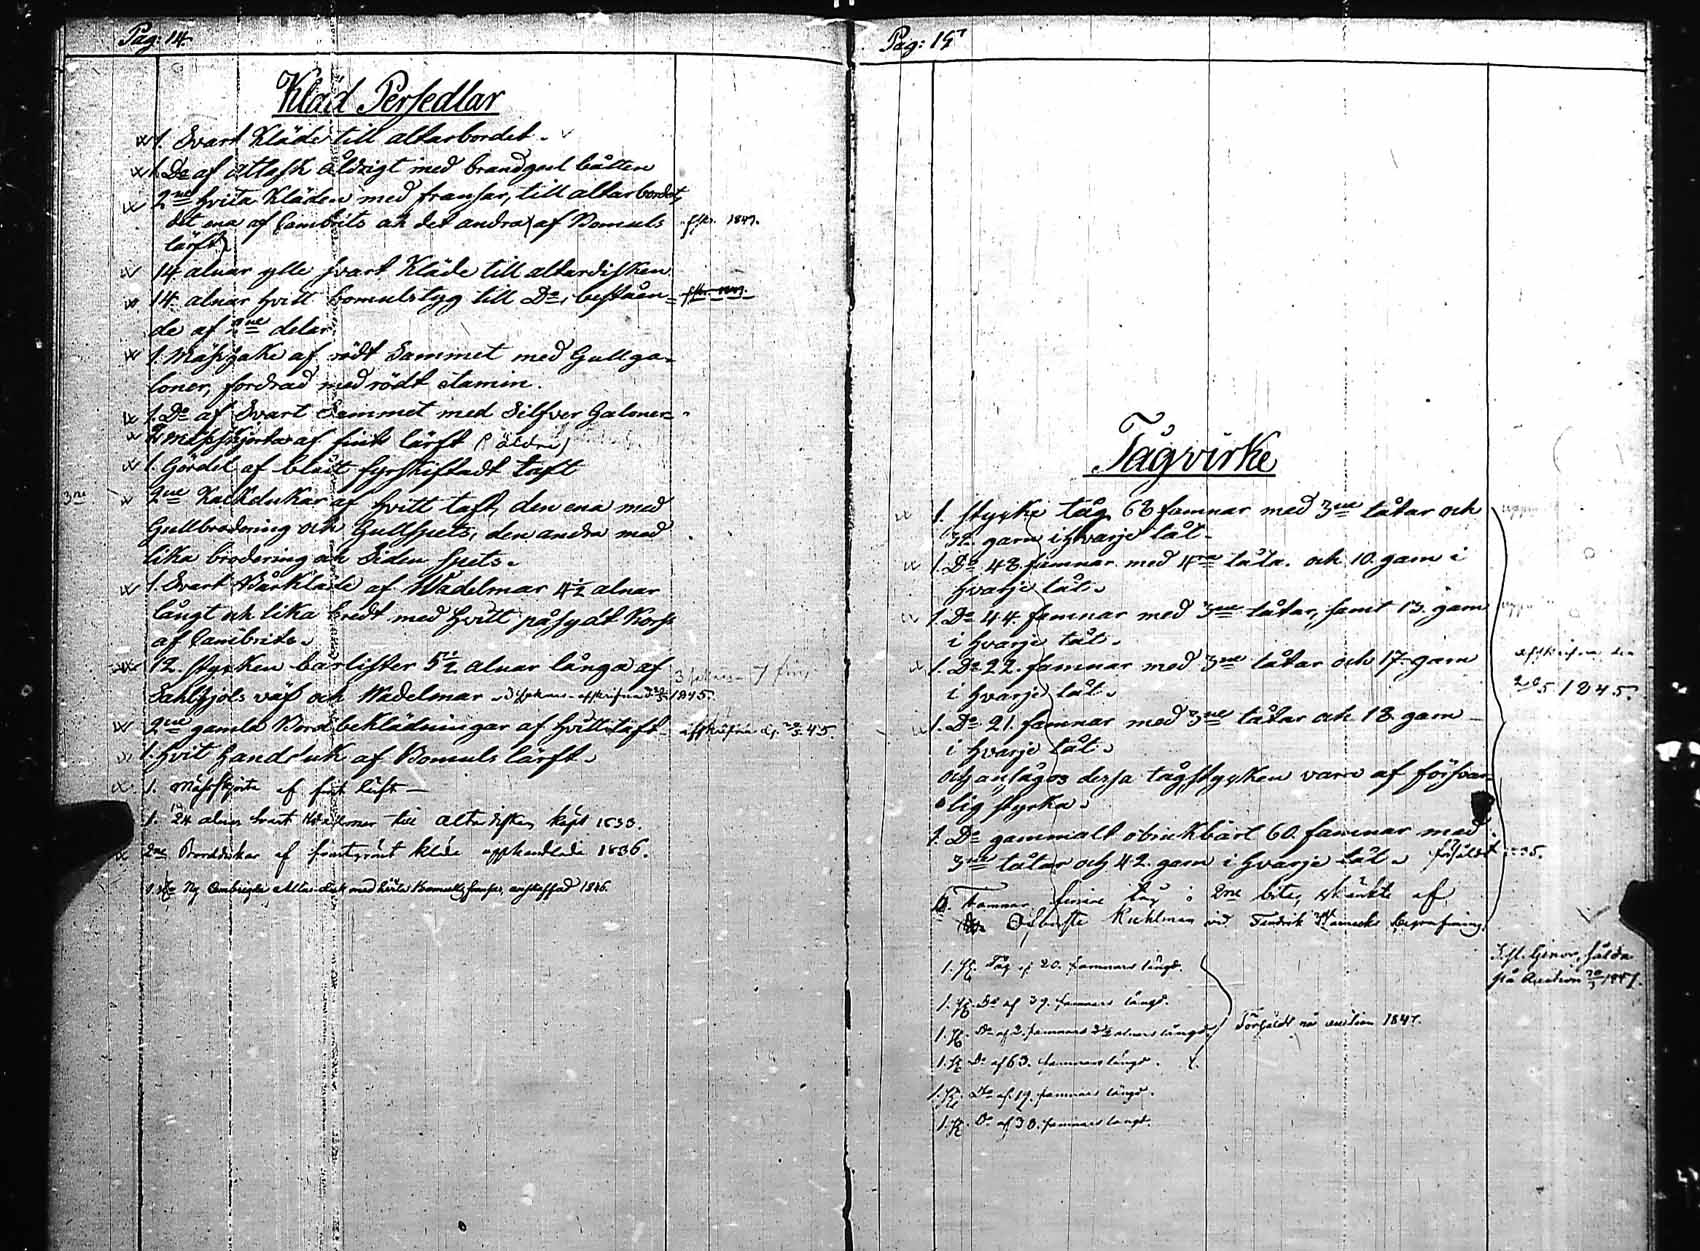 Pag: 14.
Kläd Persedlar
1. Svart Kläde till altarbordet.
1. Do af Attlask åldrigt med brandgul båtten
2ne hvita Kläden med fransar, till altarbordet,
det ena af Cambrits och det andra af Bomuls
lärft. afskr. 1847.
14 alnar ylle svart Kläde till altardisken
14. alnar hvitt bomulstyg till Do, beståen=
de af 2ne delar
1. Mässhake af rödt Sammet med Gullga=
loner, fordrad med rödt etamin.
1. Do af Svart Sammet med Silfver Galoner
2. mässkjorta af fint lärft (1 äldre)
1. Gördel af blått fyrskiftadt taft
3ne 2ne Kalkdukar af hvitt taft, den ena med
Gullbrodering och Gullspets, den andra med
lika brodering och Siden spets.
1. Svart Bårkläde af Wadelmar 4½ alnar
långt och lika bredt med hvitt påsydt Kors
af Cambrits.
12. stycken barlister 5½ alnar långa af
Sahltjols väf och Wadelmar 1845.
2ne gamla Bordbeklädningar af hvitt taft afskrifna 45.
1. Hvit handduk af Bomuls lärft.
1. Mässkjorta af fint lärft
1. 24 alnar svart Wadelmar till Altardisken köpt 1830.
2ne Borddukar af kläde upphandlade 1836.
1. Ny Altarduk med hvita Bomulls fransar, anskaffad 1846.
Pag: 15
Tågvirke
1. stycke tåg 68 famnar med 3ne tåtar och
32. garn i hvarje tåt.
1. Do 48. famnar med 4ra tåta. och 10. garn i
hvarje tåt.
1. Do 44. famnar med 3ne tåtar, samt 13. garn
i hvarje tåt.
1. Do 22. famnar med 3ne tåtar och 17. garn
i hvarje tåt.
afskrifna den
1845.
1. Do 21. famnar med 3ne tåtar och 18. garn
i hvarje tåt.
och ansågos dessa tågstycken vara af försvar=
lig styrka.
1. Do gammalt obrukbart 60. famnar med
3ne tåtar och 42. garn i hvarje tåt. försåldt 35.
Famnar finare tåg i 2ne bitar, skänkte af
vid Fendrik begrafning.
sålda
på Auction 1847.
1. st. Tåg af 20. famnars längd.
1. st. Do af 39. famnars längd.
1. st. Do af 2. famnars 2½ alnars längd. Försåldt på auction 1847.
1. st. Do af 63. famnars längd.
1. st. Do af 19. famnars längd.
1. st. Do af 30. famnars längd.